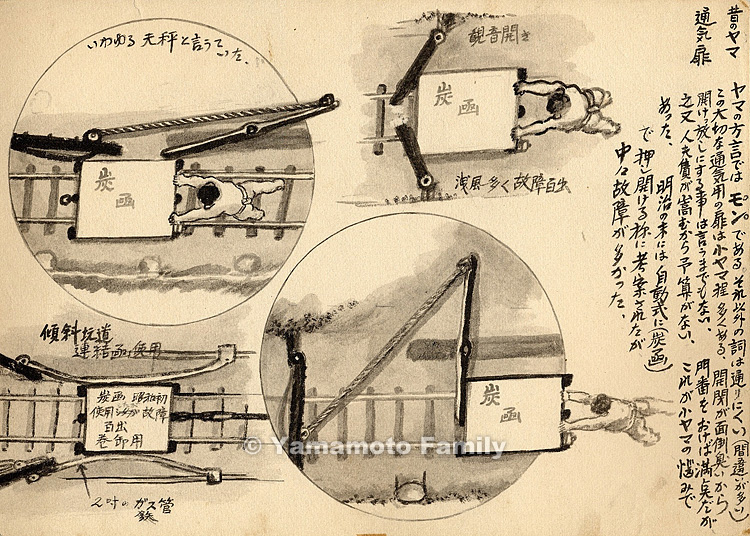 昔のヤマ
通気扉
ヤマの方言では モン。である それ以外の詞は通りにくい(間違いが多い)
この大切な通気用の扉は小ヤマ程 多くある、開閉が面倒臭いから
開けっ放しにする事は言うまでもない、門番をおけば満点だが
之又人夫費が嵩むから予算がない、これが小ヤマの悩みで
あった、 明治の末には自動式に(炭函)
で押し開ける様に考案されたが
中々故障が多かった、
いわゆる天秤と言うていた、
炭函
観音開き
炭函
浅風多く故障百出
炭函
傾斜坑道
連結函に使用
炭函 昭和初
使用 故障
百出
巻卸用
2吋のガス管
鉄
© Yamamoto Family